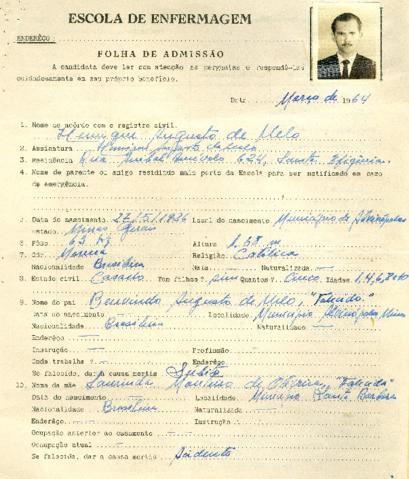 ESCOLA DE ENFERMAGEM
ENDERÊÇO:
FOLHA DE ADMISSÃO
A candidata deve ler com atenção as perguntas e respondê-las
cuidadosamente em seu próprio benefício.
Data Março de 1964
1. Nome de acôrdo com o registro civil.
Henrique Augusto de Melo
2. Assinatura Henrique Augusto de Melo
3. Residência Rua 624, Santa Efigênia.
4. Nome de parente ou amigo residindo mais perto da Escola para ser notificado em caso
de emergência.
5. Data do nascimento 27/5/1936 Local do nascimento Município de Alvinópolis
Estado: Minas Gerais
6. Pêso 63 kg Altura 1.68 m
7. Côr Morena Religião: Católica
Nacionalidade Brasileira Nata Naturalizada
8. Estado civil: Casado Tem filhos? sim Quantos? Cinco Idades 1,4,6,8 e 10
9. Nome do pai Benvindo Augusto de Melo, "Falecido."
Data do nascimento Localidade Município Alvinópolis Minas
Nacionalidade Brasileira Naturalizado
Enderêço
Instrução Profissão
Onde trabalha? Enderêço
Se falecido, dar a causa mortis Subita
10. Nome da mãe de Oliveira "Falecida"
Data do nascimento Localidade Município Santa Barbara
Nacionalidade Brasileira Naturalizada
Enderêço: Instrução
Ocupação anterior ao casamento
Ocupação atual
Se falecida, dar a causa mortis